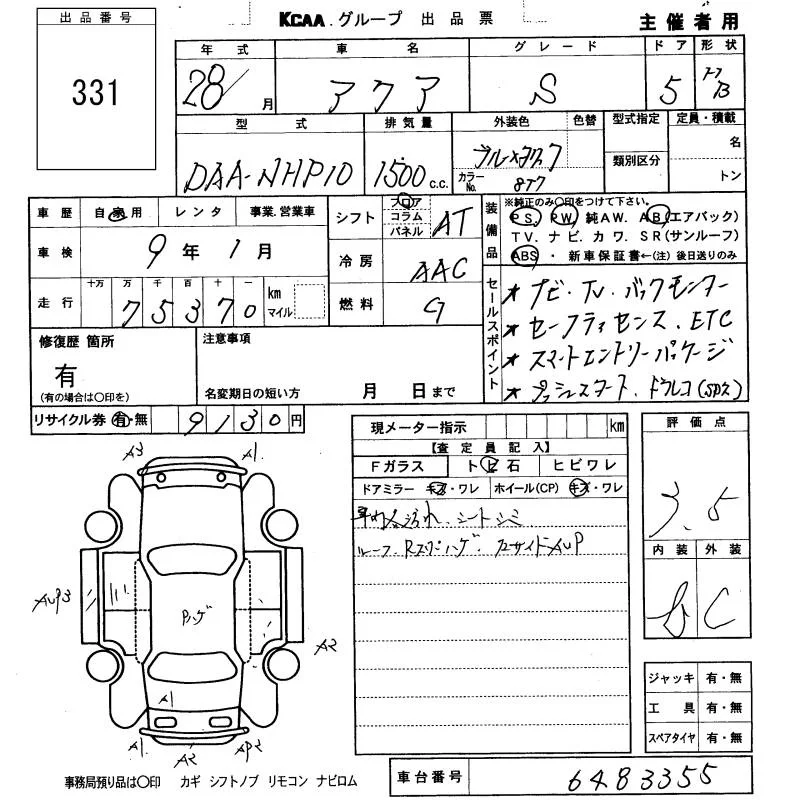 出品番号
331
KCAA.グループ 出品票
主催者用
年式 車名 グレード ドア 形状
28/ 月 アクア S 5 B
型式 排気量 外装色 色替 型式指定 定員・積載
DAA-NHP10 1500 c.c. カラーNo. 8T7 類別区分 名 トン
車歴 自家用 レンタ 事業.営業車
車検 9年1月
走行 十万 万 千 百 十 一 km マイル
75370
シフト フロア コラム パネル AT
冷房 AAC
燃料 G
装備品 ※純正のみ○印をつけて下さい。
PS. PW 純AW. AB(エアバック)
TV. ナビ. カワ. SR(サンルーフ)
ABS ・ 新車保証書←(注)後日送りのみ
セールスポイント
★ナビ・TV・バックモニター
★セーフティセンス. ETC
★スマートエントリーパッケージ
★プッシュスタート. ドラレコ
修復歴 箇所
有
(有の場合は○印を)
注意事項
名変期日の短い方 月 日まで
リサイクル券 有・無 9130円
現メーター指示 km
【査定員記入】
Fガラス トビ石 ヒビワレ
ドアミラー キズ・ワレ ホイール(CP) キズ・ワレ
シートシミ
ルーフ.
評価点
3.5
内装 外装
b C
A3 A1
AUP3
Pハゲ
A2
A1
A1 A2 AP2
ジャッキ 有・無
工具 有・無
スペアタイヤ 有・無
事務局預り品は○印 カギ シフトノブ リモコン ナビロム
車台番号 6483355